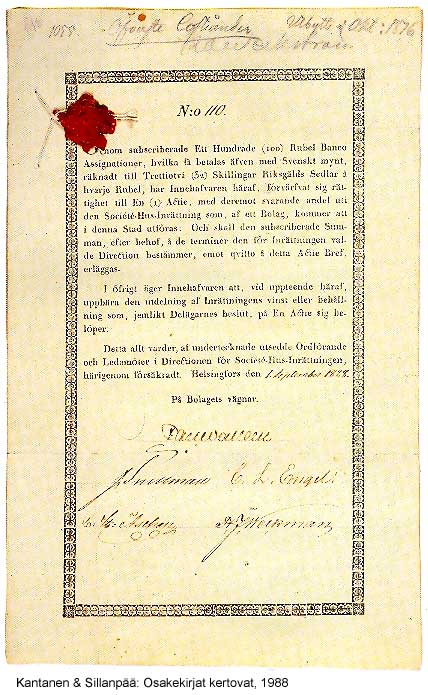 1088.
Utbytt d Okt: 1876
N:o 110.
Genom subscriberade Ett Hundrade (100) Rubel Banco
Assignationer, hvilka få betalas äfven med Svenskt mynt,
räknadt till Trettiotvå (32) Skillingar Riksgälds Sedlar å
hvarje Rubel, har Innehafvaren häraf, förvärfvat sig rät-
tighet till En (1) Actie, med deremot svarande andel uti
den Société-Hus-Inrättning som, af ett Bolag, kommer att
i denna Stad utföras: Och skall den subscriberade Sum-
man, efter behof, å de terminer den för inrättningen val-
de Direction bestämmer, emot qvitto å detta Actie Bref,
erläggas.
I öfrigt äger Innehafvaren att, vid uppteende häraf,
uppbära den utdelning af Inrättningens vinst eller behåll-
ning som, jemlikt Delägarnes beslut, på En Actie sig be-
löper.
Detta allt varder, af undertecknade utsedde Ordförande
och Ledamöter i Directionen för Société-Hus-Inrättningen,
härigenom försäkradt. Helsingfors den 1 September 1828.
På Bolagets vägnar.
C. L. Engel.
Kantanen & Sillanpää: Osakekirjat kertovat, 1988